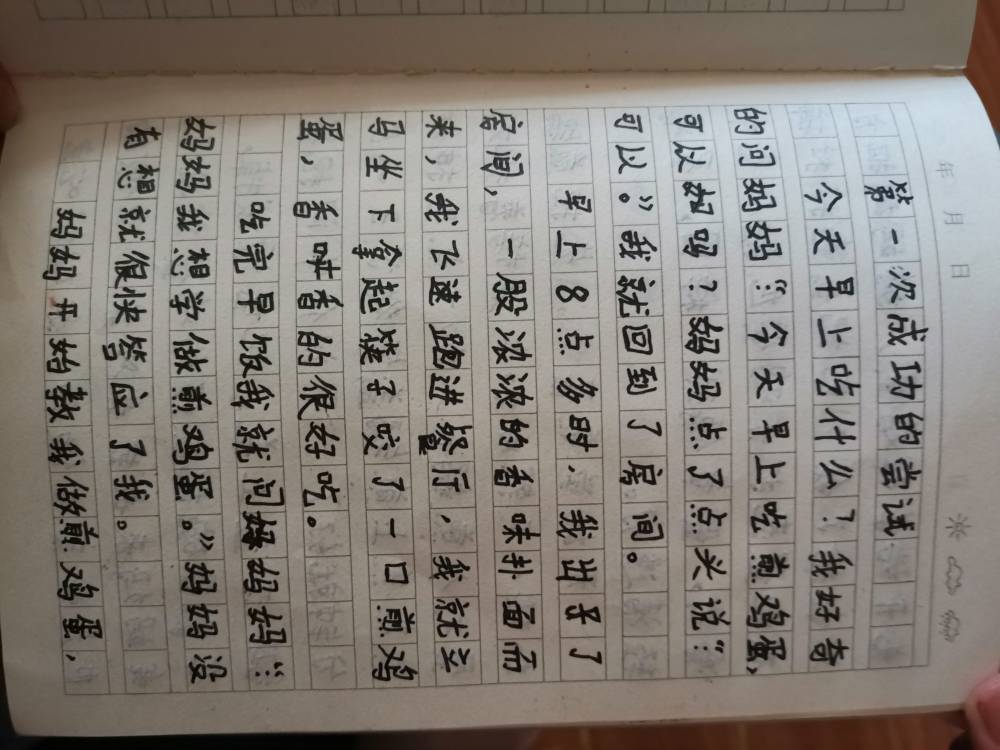 年 月 日
第一次成功的尝试
今天早上吃什么？我好奇
的问妈妈妈“：今天早上吃煎鸡蛋、
可以如吗？妈妈点了点头说“：
可以。”我就回到了房间。
早上8点多时，我出了
房间，一股浓浓的香味扑面而
来，我飞速跑进餐厅，我就立
马坐下拿起筷子咬了一口煎鸡
蛋，香味香的很好吃。
吃完早饭我就问妈妈妈“：
妈妈我想学做煎鸡蛋。”妈妈没
有想就很快答应了我。
妈妈开始教我做煎鸡蛋，